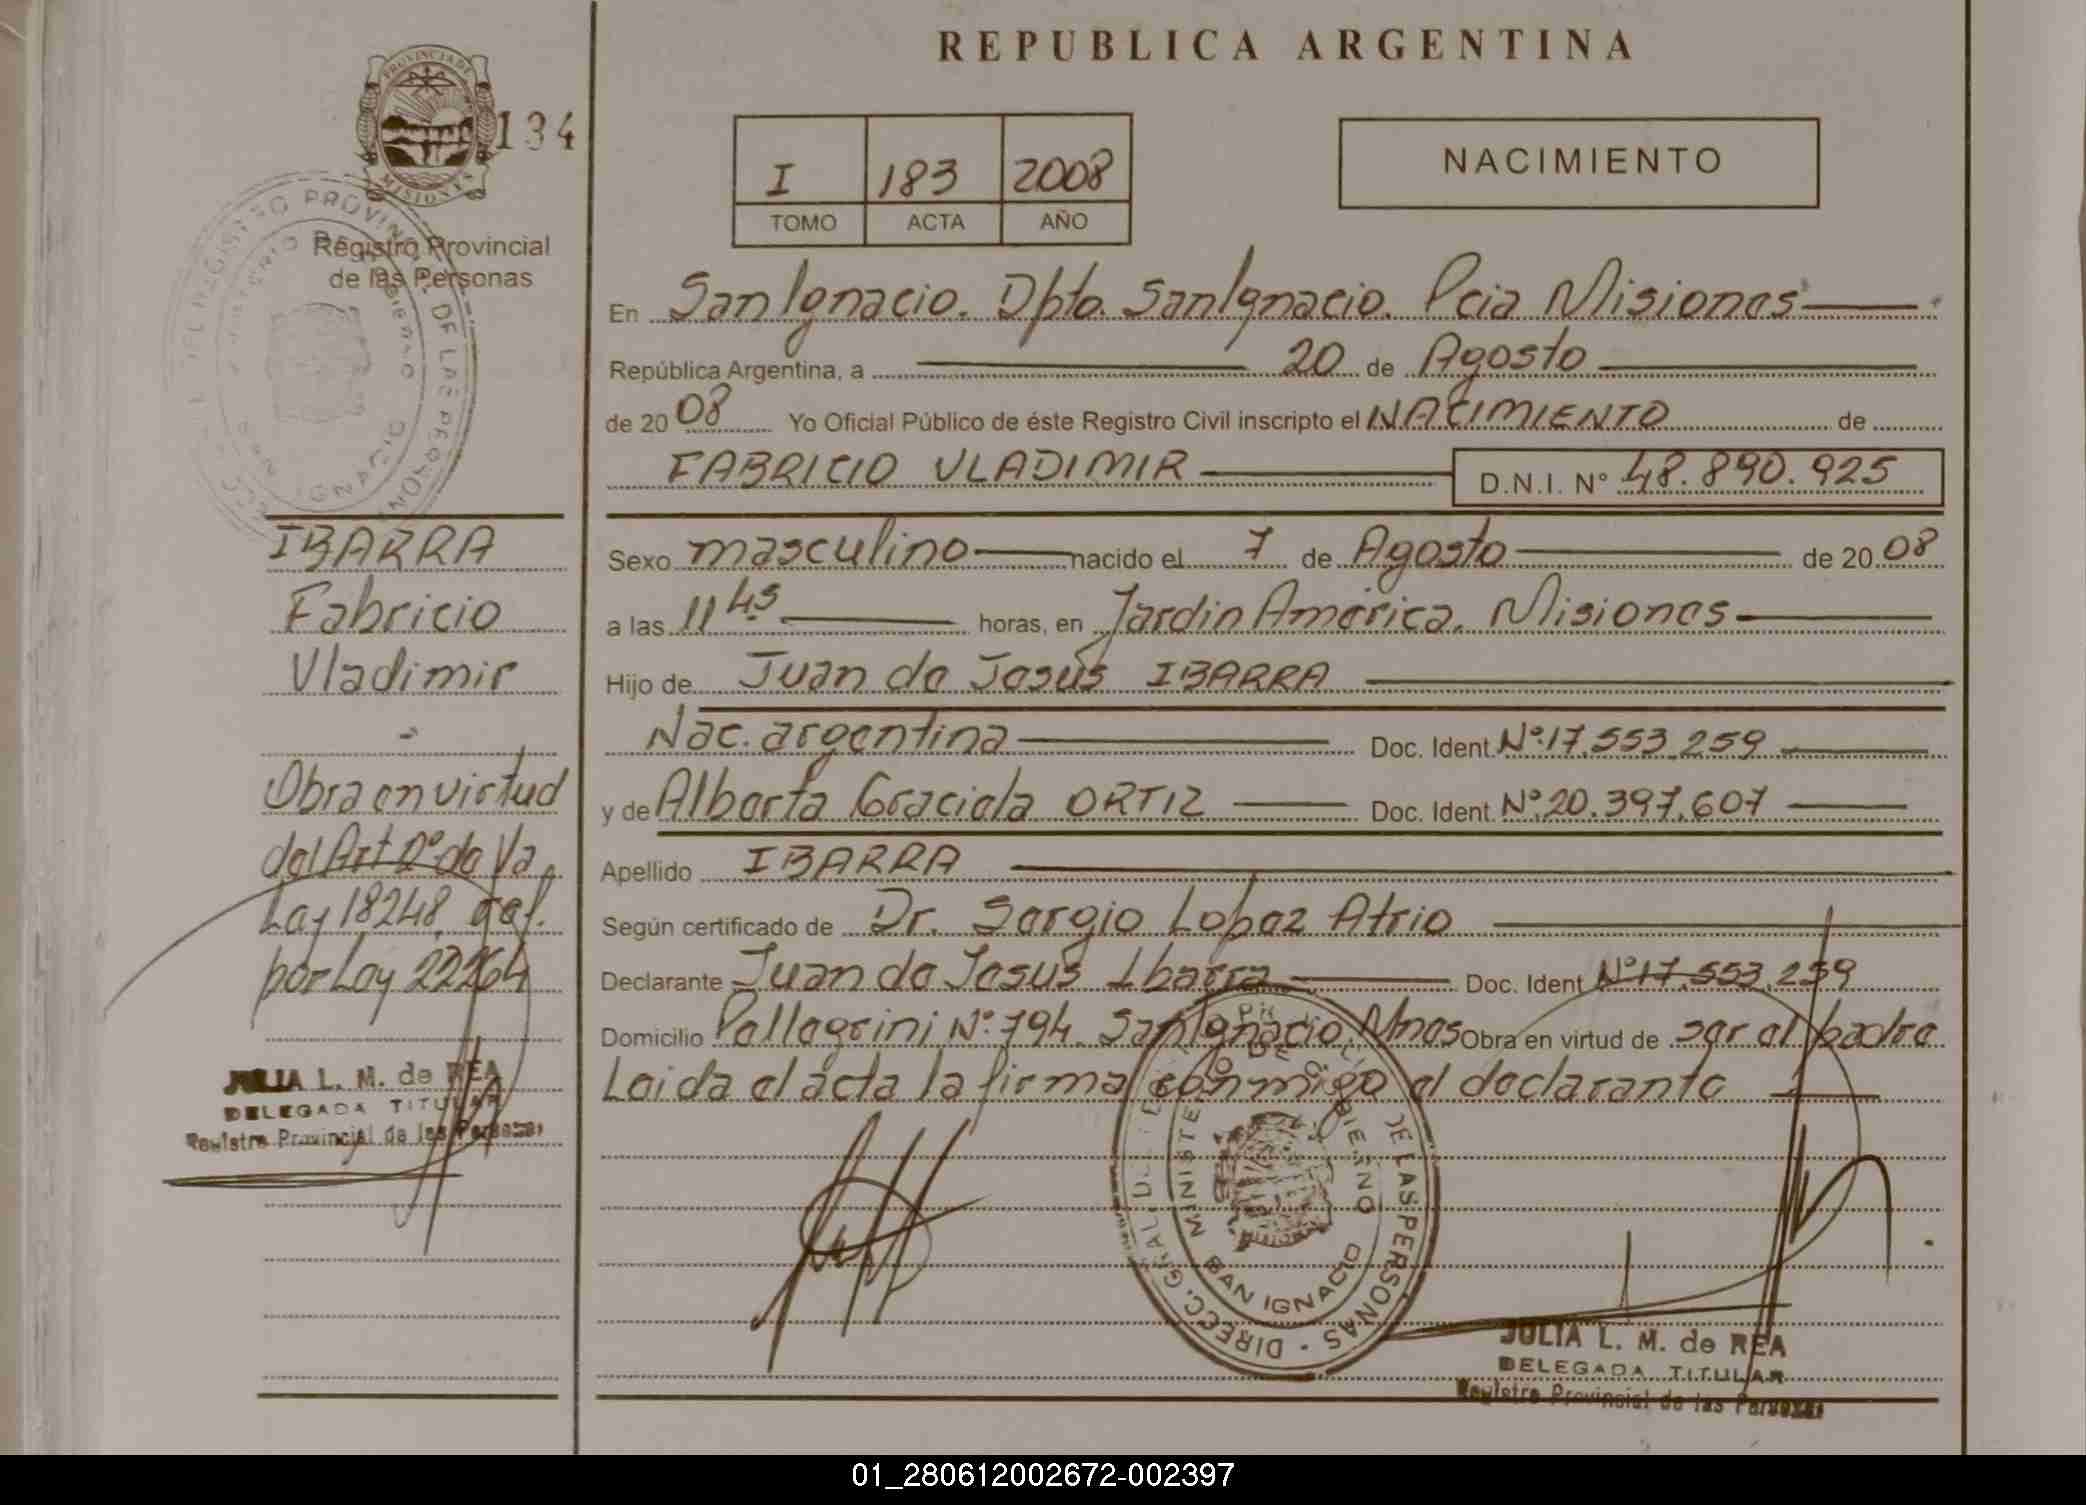 REPUBLICA ARGENTINA
PROVINCIA DE
MISIONES
134
Registro Provincial
de las Personas
I 183 2008
TOMO ACTA AÑO
NACIMIENTO
En San Ignacio. Dpto. San Ignacio. Pcia Misiones
República Argentina, a 20 de Agosto
de 2008 Yo Oficial Público de éste Registro Civil inscripto el NACIMIENTO de
FABRICIO VLADIMIR D.N.I. N° 48.890.925
Sexo masculino nacido el 7 de Agosto de 2008
a las 11 45 horas, en Jardin América. Misiones
Hijo de Juan de Jesús IBARRA
Nac. argentina Doc. Ident. Nº.17.553.259
y de Alberta Graciela ORTIZ Doc. Ident. Nº.20.397.607
Apellido IBARRA
Según certificado de Dr. Sergio Lopez Atrio
Declarante Juan de Jesús Ibarra Doc. Ident Nº17.553.259
Domicilio Pellegrini Nº.794. San Ignacio. Mnes Obra en virtud de ser el padre
Leida el acta la firma conmigo el declarante
IBARRA
Fabricio
Vladimir
Obra en virtud
del Art 2º de la
Ley 18248, ref.
por Ley 22264
JULIA L. M. de REA
DELEGADA TITULAR
Registro Provincial de las Personas
MINISTERIO DE GOBIERNO
SAN IGNACIO
DE LAS PERSONAS - DIRECC. GRAL. DEL
JULIA L. M. de REA
DELEGADA TITULAR
Registro Provincial de las Personas
01_280612002672-002397